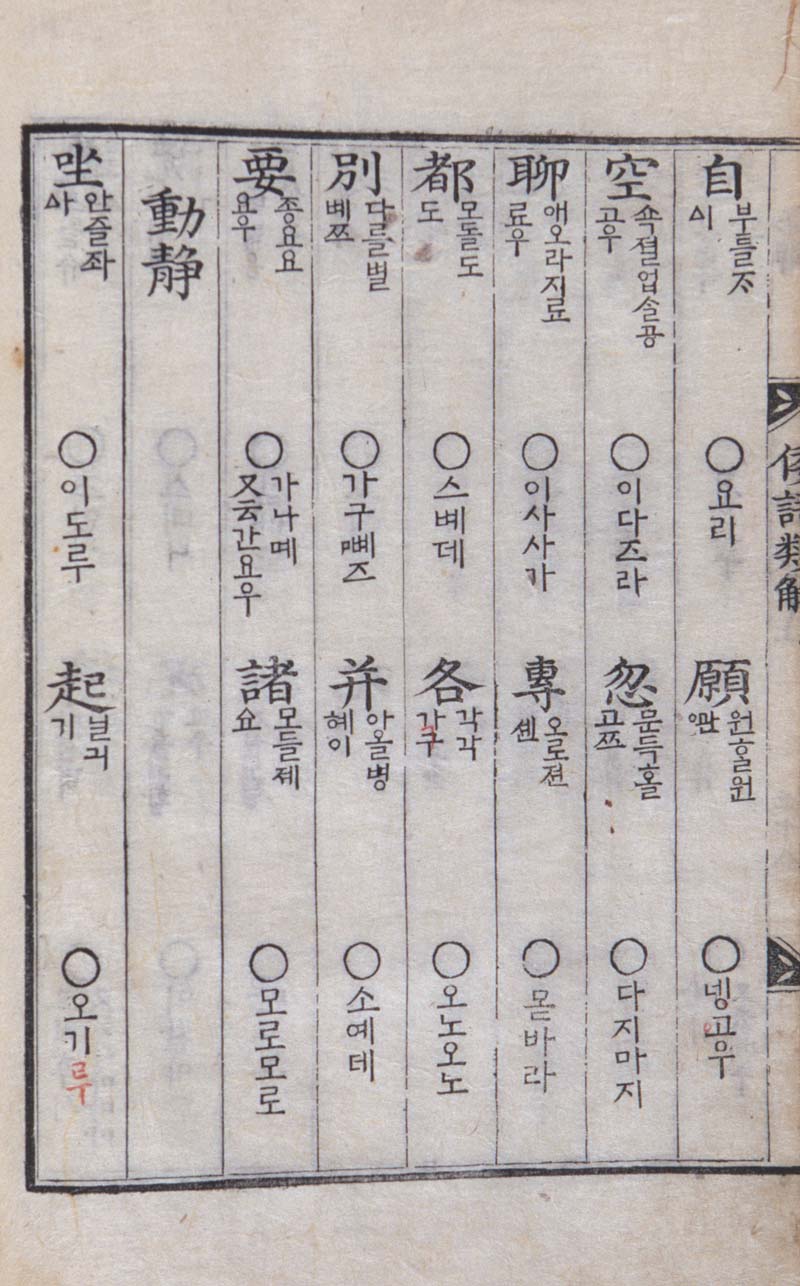 倭語類解
自 부틀ᄌᆞ 시 ○요리
願 원ᄒᆞᆯ원 ○넹고우
空 쇽졀업ᄉᆞᆯ공 고우 ○이다즈라
忽 문득홀 고쯔 ○다지마지
聊 애오라지료 료우 ○이사사가
專 올로젼 셴 ○몯바라
都 모돌도 도 ○스볘데
各 각각 가구 ○오노오노
別 다ᄅᆞᆯ별 볘쯔 ○가구볘즈
并 아올병 혜이 ○소예데
要 종요요 요우 ○가나메 又云간요우
諸 모들졔 쇼 ○모로모로
動靜
坐 안즐좌 사 ○이도루
起 닐긔 기 ○오기루